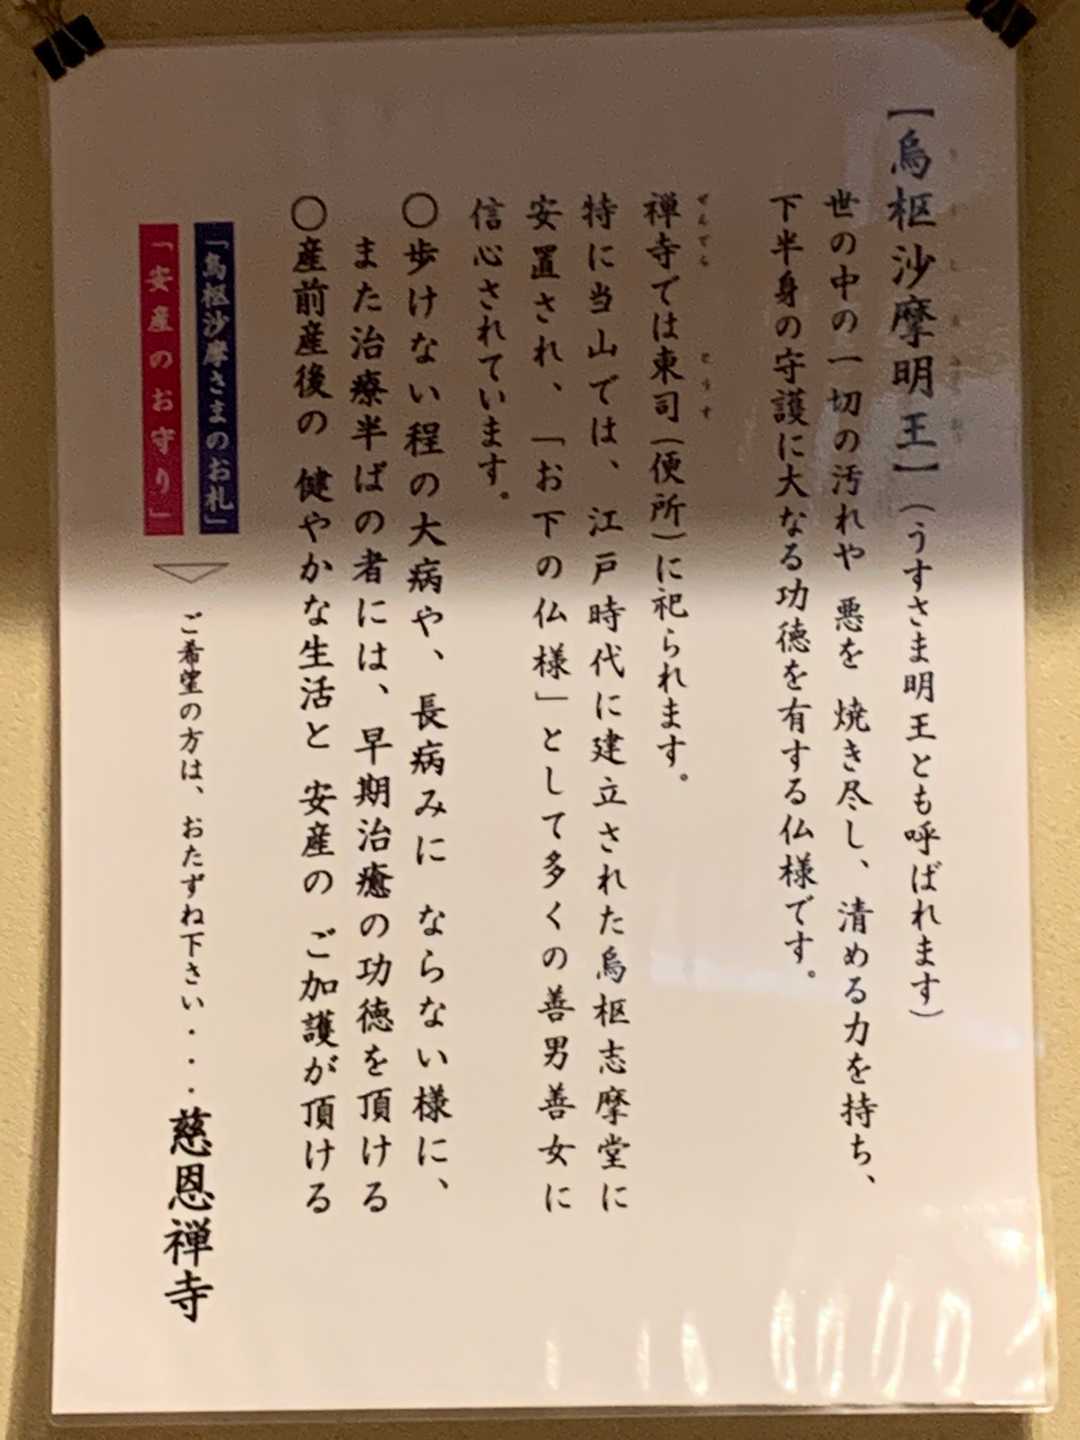 【烏枢沙摩明王】(うすさま明王とも呼ばれます)
世の中の一切の汚れや 悪を 焼き尽し、清める力を持ち、
下半身の守護に大なる功徳を有する仏様です。
ぜんでら とうす
禅寺では東司(便所)に祀られます。
特に当山では、江戸時代に建立された烏枢志摩堂に
安置され、「お下の仏様」として多くの善男善女に
信心されています。
〇歩けない程の大病や、長病みに ならない様に、
また治療半ばの者には、早期治癒の功徳を頂ける
〇産前産後の 健やかな生活と 安産の ご加護が頂ける
「烏枢沙摩さまのお札」
「安産のお守り」
ご希望の方は、おたずね下さい・・・慈恩禅寺